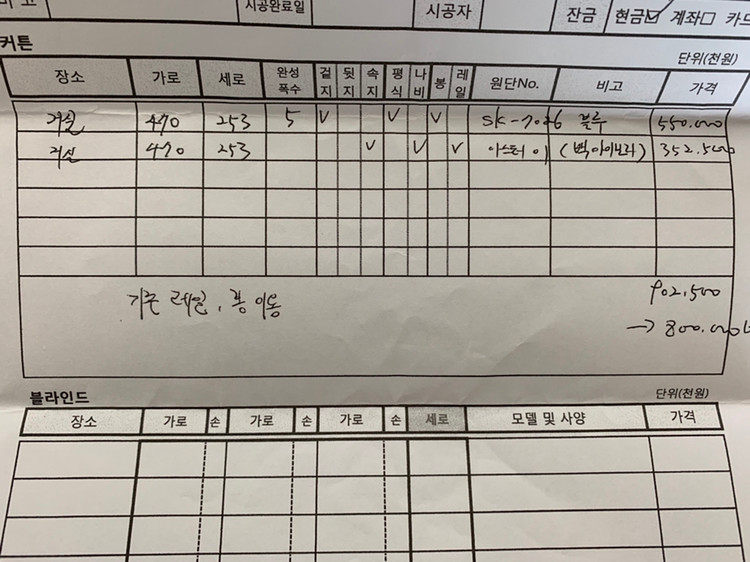 비고 시공완료일 시공자 잔금 현금☑ 계좌□ 카드
커튼
단위(천원)
장소 가로 세로 완성폭수 겉지 뒷지 속지 평식 나비 봉 레일 원단No. 비고 가격
거실 470 253 5 V V V SK-7026 블루 550.000
거실 470 253 V V V 아스터 01 352.500
기존 레일, 봉 이동
902.500
→ 800.000
블라인드
단위(천원)
장소 가로 손 가로 손 가로 손 세로 모델 및 사양 가격